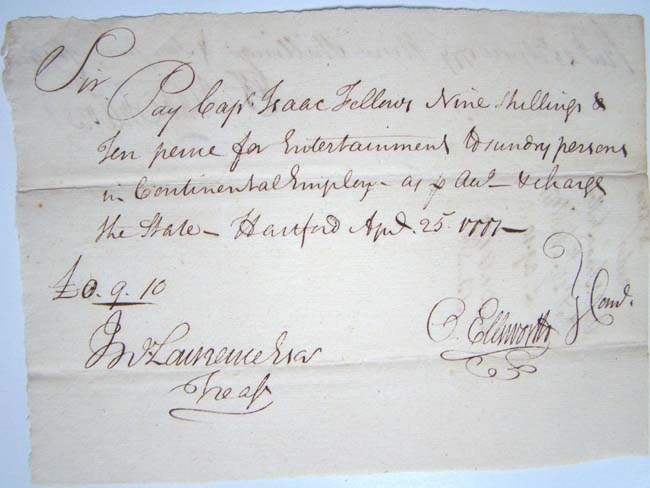 Sir
Pay Capt Isaac Fellows Nine Shillings &
Ten pence for Entertainment to sundry persons
in Continental Employ - as p Acct - & charge
the State - Hartford Apl. 25. 
£0. 9. 10
O. Ellsworth } Comt.
Jno Lawrence Esqr
Treasr